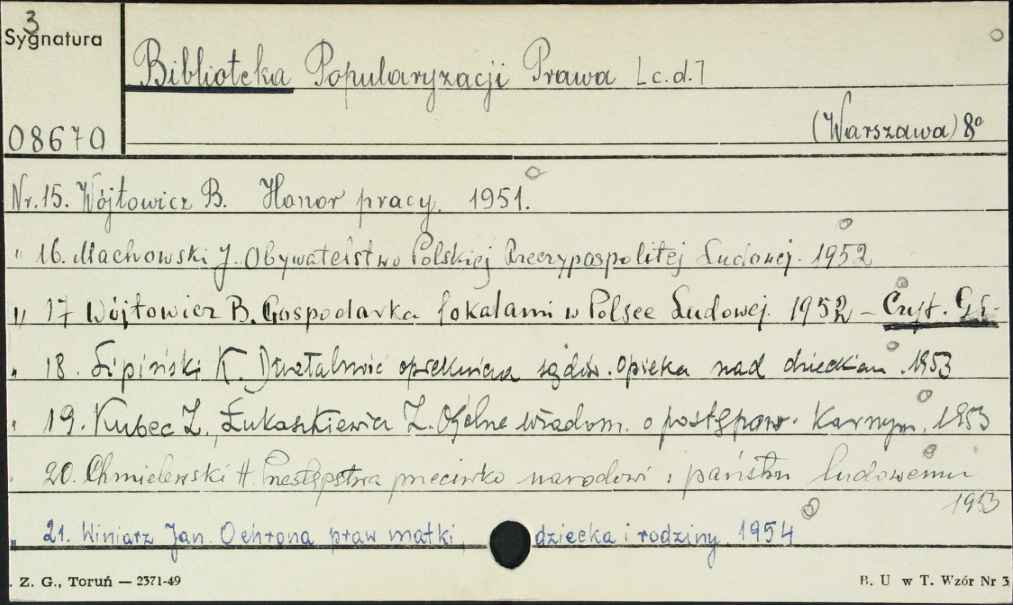 3
Sygnatura
Biblioteka Popularyzacji Prawa [c.d.]
08670
(Warszawa) 8°
Nr. 15. Wójtowicz B. Honor pracy. 1951.
" 16. Machowski J. Obywatelstwo Polskiej Rzeczypospolitej Ludowej. 1952
" 17 Wójtowicz B. Gospodarka lokalami w Polsce Ludowej. 1952 – Czyt. Gł.
" 18. Lipiński K. Działalność opiekuńcza sądów. Opieka nad dzieckiem. 1953
" 19. Kubec Z., Łukaszkiewicz Z. Ogólne wiadom. o postępow. karnym. 1953
20. Chmielewski H. Przestępstwa przeciwko narodowi i państwu ludowemu
1953
" 21. Winiarz Jan. Ochrona praw matki, dziecka i rodziny. 1954
. Z. G., Toruń — 2371-49
B. U w T. Wzór Nr 3